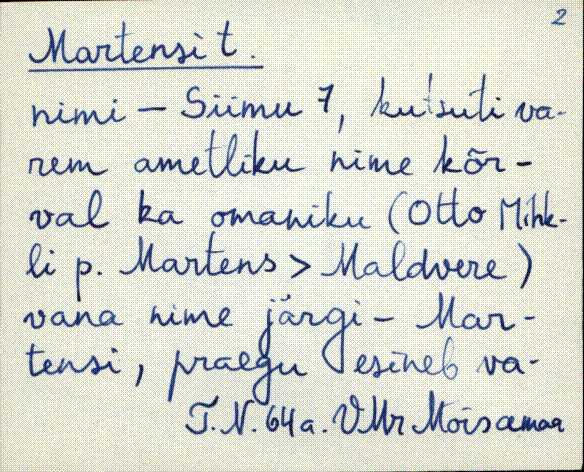 2
Martensi t.
nimi – Siimu 7, kutsuti va-
rem ametliku nime kõr-
val ka omaniku (Otto Mihk-
li p. Martens > Maldvere)
vana nime järgi – Mar-
tensi, praegu esineb va-
T.N. 64a. VMr Mõisamaa